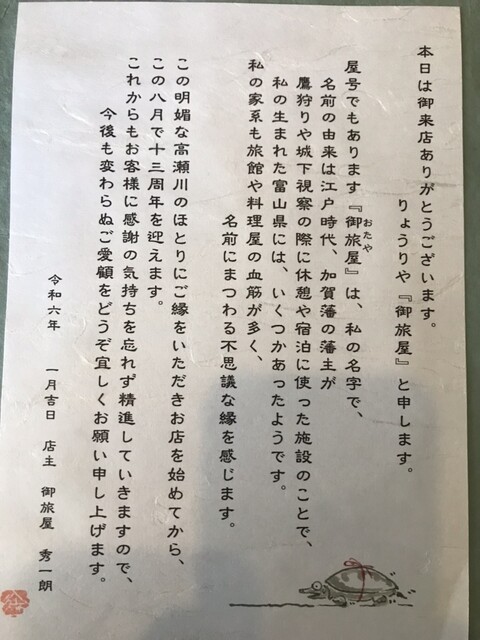 本日は御来店ありがとうございます。
りょうりや『御旅屋』と申します。
屋号でもあります『御旅屋』は、私の名字で、
おたや
名前の由来は江戸時代、加賀藩の藩主が
鷹狩りや城下視察の際に休憩や宿泊に使った施設のことで、
私の生まれた富山県には、いくつかあったようです。
私の家系も旅館や料理屋の血筋が多く、
名前にまつわる不思議な縁を感じます。
この明媚な高瀬川のほとりにご縁をいただきお店を始めてから、
この八月で十三周年を迎えます。
これからもお客様に感謝の気持ちを忘れず精進していきますので、
今後も変わらぬご愛顧をどうぞ宜しくお願い申し上げます。
令和六年 一月吉日 店主 御旅屋 秀一朗